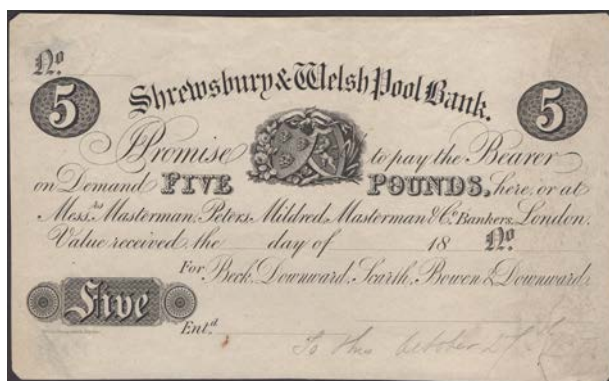 No.
5 Shrewsbury & Welsh Pool Bank. 5
Promise to pay the Bearer
on Demand FIVE POUNDS, here, or at
Mess.rs Masterman, Peters, Mildred, Masterman & Co. Bankers, London.
Value received, the day of 18 No.
For Beck, Downward, Scarth, Bowen & Downward.
Five
Ent.d
October 2